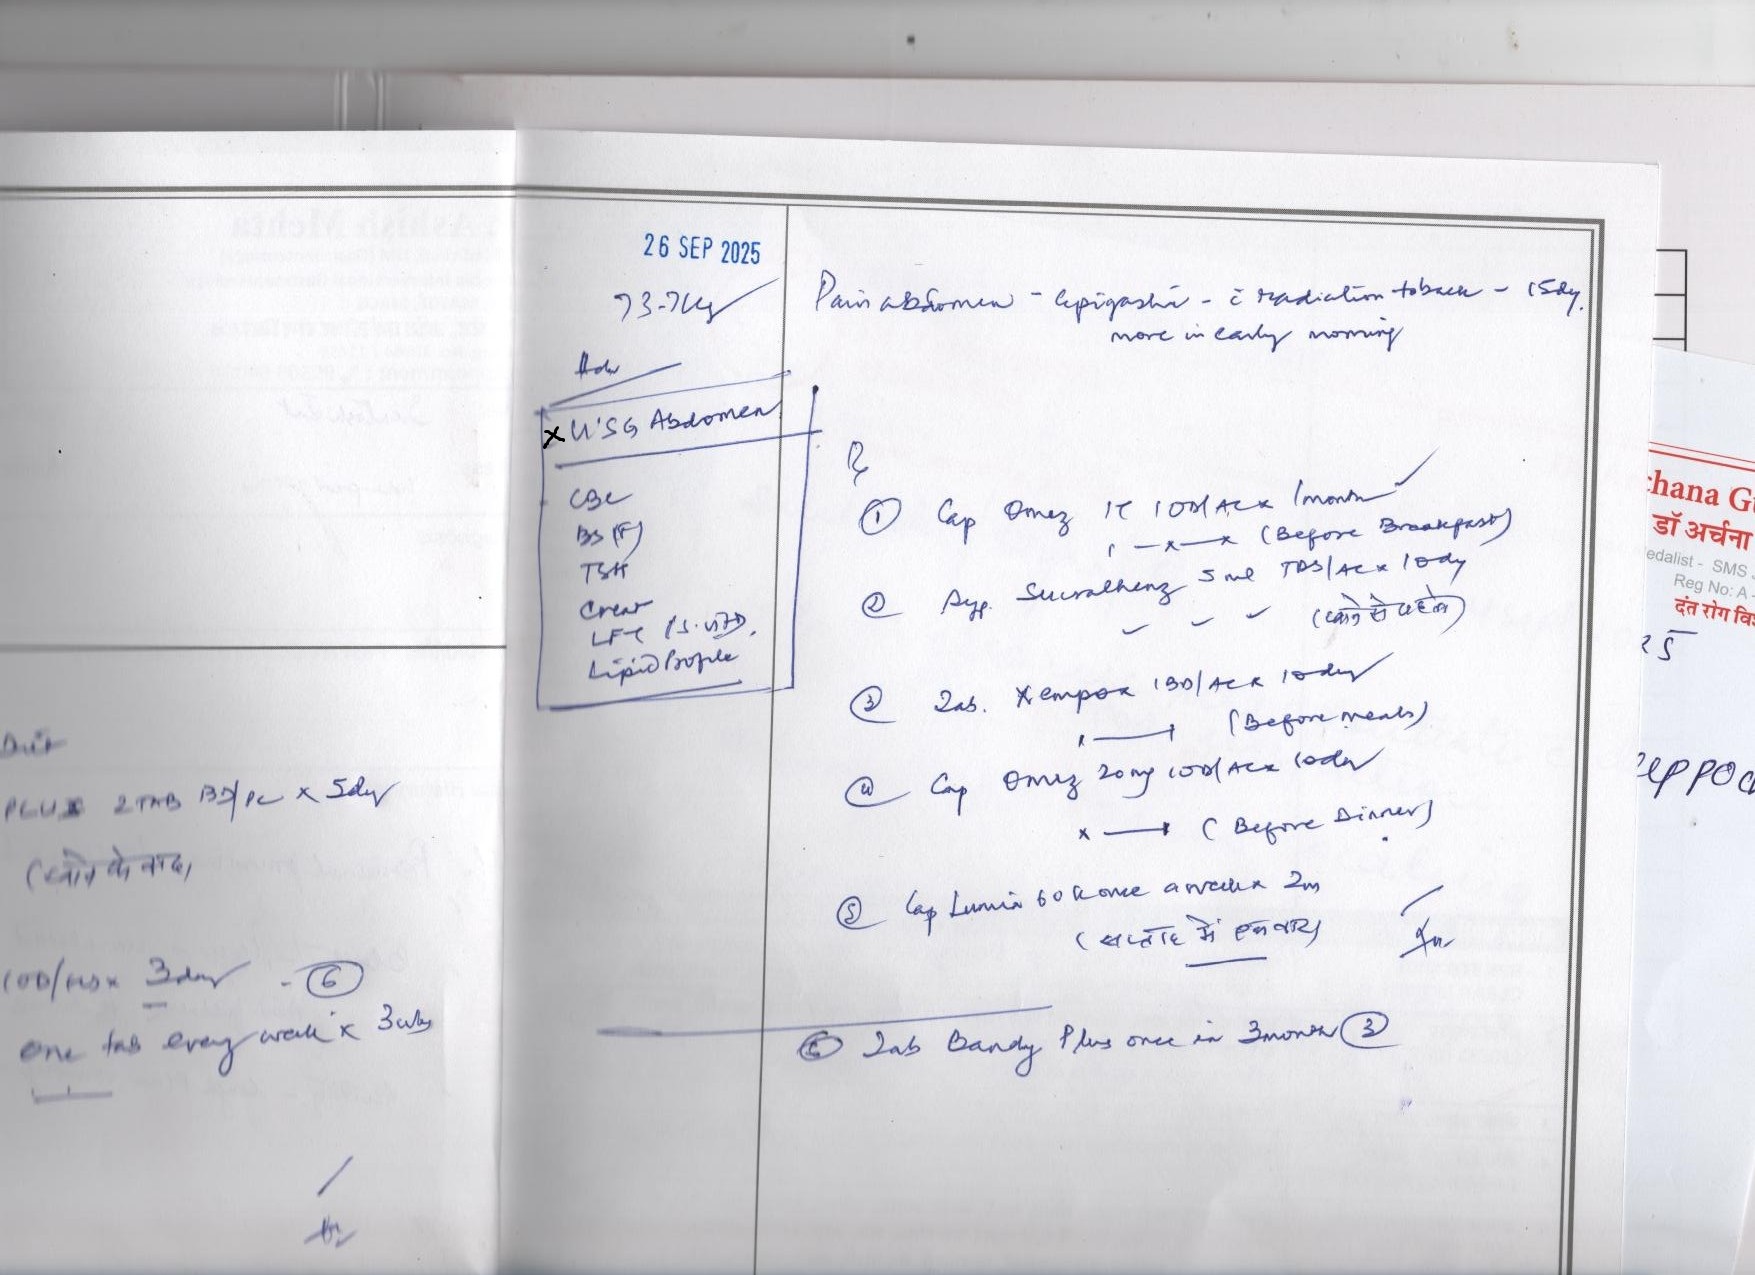 26 SEP 2025
73.7kg
Pain abdomen - epigastri - c̄ radiation to back - 15dy.
more in early morning
Adv
x USG Abdomen
CBC
BS (F)
TSH
Creat
LFT
Lipid Profile
Rx
① Cap Omez 1OD/AC x 1month
1 -x-x (Before Breakfast)
② Syp. 5 ml TDS/AC x 10dy
✓ ✓ ✓ (खाने से पहले)
③ Tab. 1BD/AC x 10day
(Before meals)
④ Cap Omez 20mg 1OD/AC x 10day
x (Before Dinner)
⑤ Cap Lumia 60K once a week x 2m
(सप्ताह में एक बार)
⑥ Tab Bandy Plus once in 3month ③
PLUS 2TAB BD/PC x 5dy
(खाने के बाद)
1OD/HS x 3day - ⑥
one tab every week x 3wks
chana Gu
डॉ अर्चना
edalist - SMS
Reg No: A -
दंत रोग विश